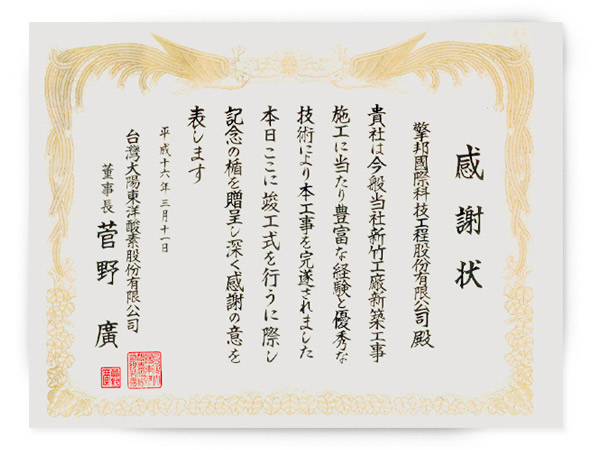 感謝状
擎邦國際科技工程股份有限公司殿
貴社は今般当社新竹工廠新築工事
施工に当たり豊富な経験と優秀な
技術により本工事を完遂されました
本日ここに竣工式を行うに際し
記念の楯を贈呈し深く感謝の意を
表します
平成十六年三月十一日
台灣大陽東洋酸素股份有限公司
董事長 菅野廣